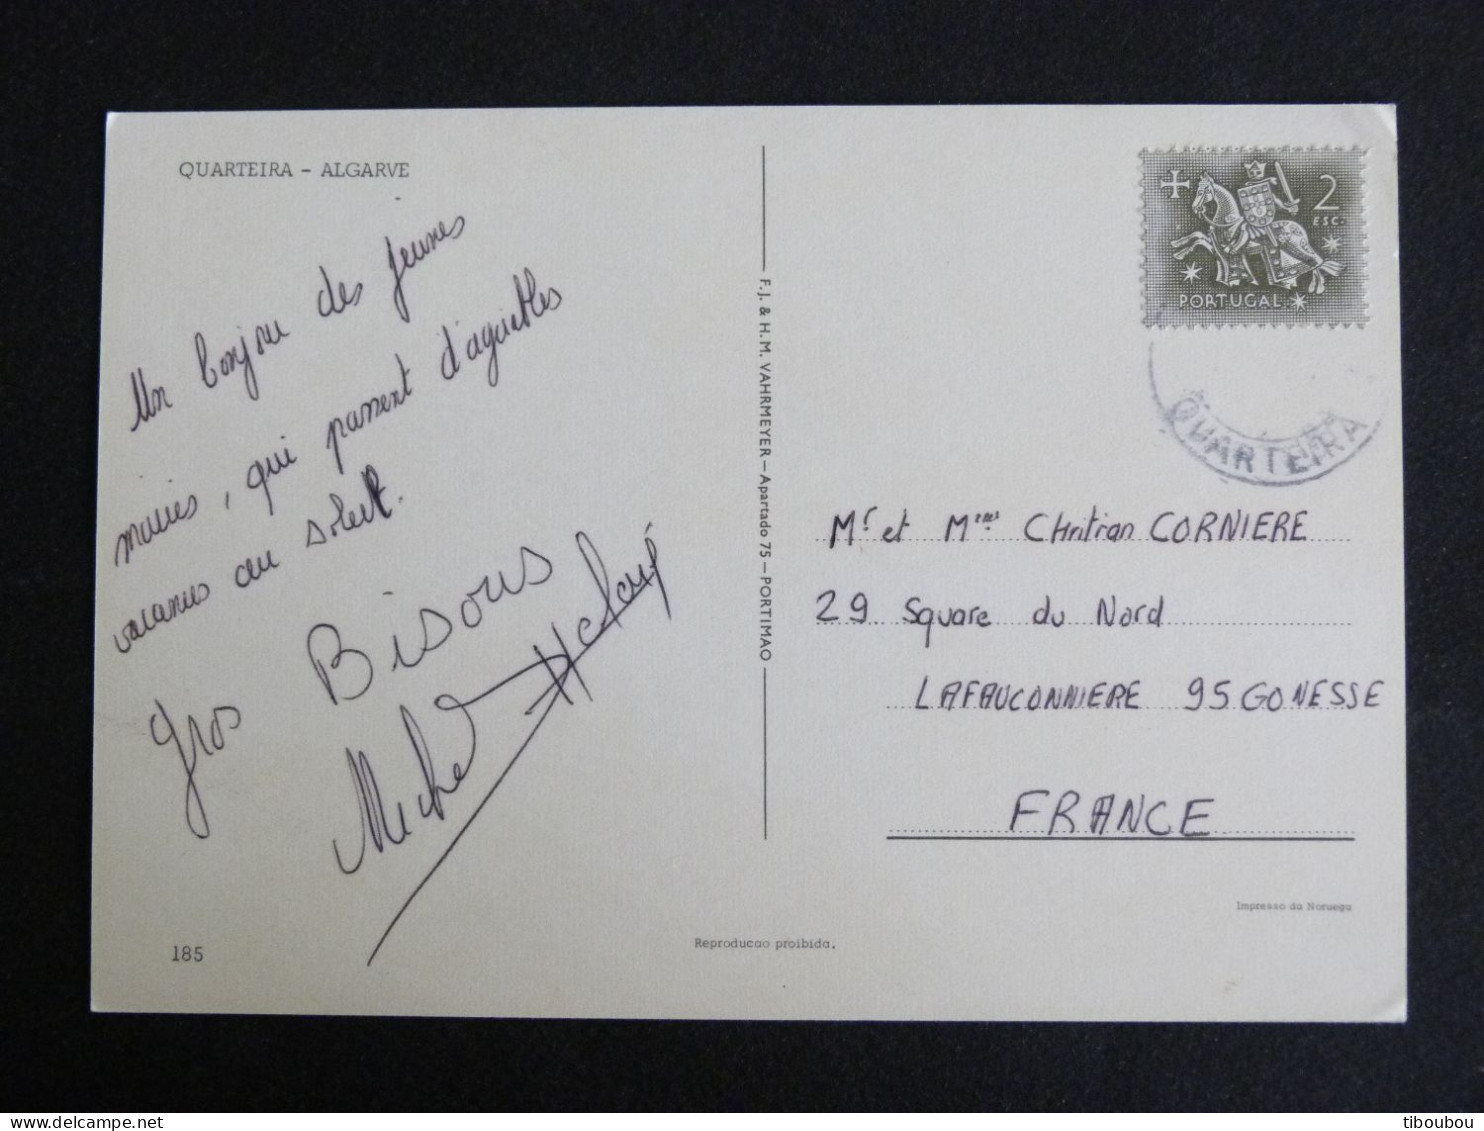 QUARTEIRA - ALGARVE
Un bonjou des jeunes
mariés, qui passent d'agréables
vacances au soleil.
Gros Bisous
Michel
185
F.J. & H.M. VAHRMEYER — Apartado 75 — PORTIMAO
Reproducao proibida.
2
ESC.
PORTUGAL
QUARTEIRA
Mr et Mme Christian CORNIERE
29 Square du Nord
LAFAUCONNIERE 95 GONESSE
FRANCE
Impresso da Noruega
tiboubou